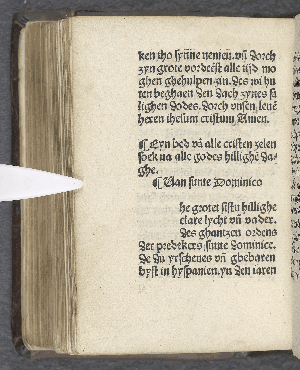 ken tho synne nemen. vñ dorch
zyn grote vordeēst alle tijd mo
ghen ghehulpen zin. des wi hu
ten beghaen den dach zynes sa
lighen dodes. dorch vnsen leuē
heren ihesum cristum Amen.
¶ Eyn bed vā alle cristen zelen
soek na alle godes hillighē da-
ghe.
¶ Van sunte Dominico
he grotet sistu hillighe
clare lycht vñ vader.
des ghantzen ordens
der predekers sunte dominice.
de du yrschenes vñ ghebaren
byst in hyspanien. yn den iaren